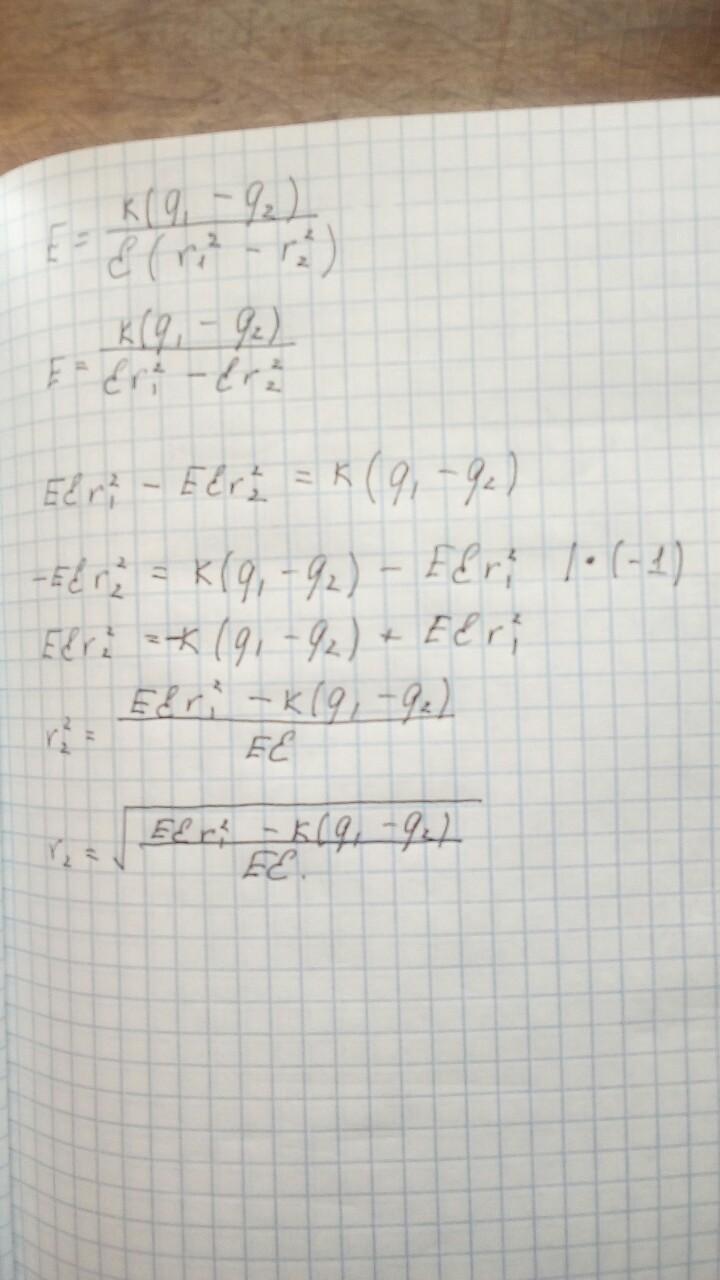 E = k(q₁ - q₂) / ℰ(r₁² - r₂²)
E = k(q₁ - q₂) / ℰr₁² - ℰr₂²
Eℰr₁² - Eℰr₂² = k(q₁ - q₂)
-Eℰr₂² = k(q₁ - q₂) - Eℰr₁² | · (-1)
Eℰr₂² = -k(q₁ - q₂) + Eℰr₁²
r₂² = Eℰr₁² - k(q₁ - q₂) / Eℰ
r₂ = √(Eℰr₁² - k(q₁ - q₂) / Eℰ).